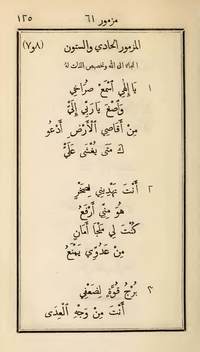 مزمور ٦١ ١٢٥
المزمور الحادي والستون (٨و٧)
التجاء الى الله وتخصيص الذات له
١ يَا إِلٰهِي ٱسْمَعْ صُرَاخِي
وَٱصْغَ يَا رَبِّي إِلَيَّ
مِنْ أَقَاصِي ٱلْأَرْضِ أَدْعُو
كَ مَتَى يُغْشَى عَلَيَّ
٢ أَنْتَ تَهْدِينِي لِصَخْرٍ
هُوَ مِنِّي أَرْفَعُ
كُنْتَ لِي مَلْجَا أَمَانٍ
مِنْ عَدُوِّي يَمْنَعُ
٣ بُرْجُ قُوَّةٍ لِضَعْفِي
أَنْتَ مِنْ وَجْهِ ٱلْعِدَى